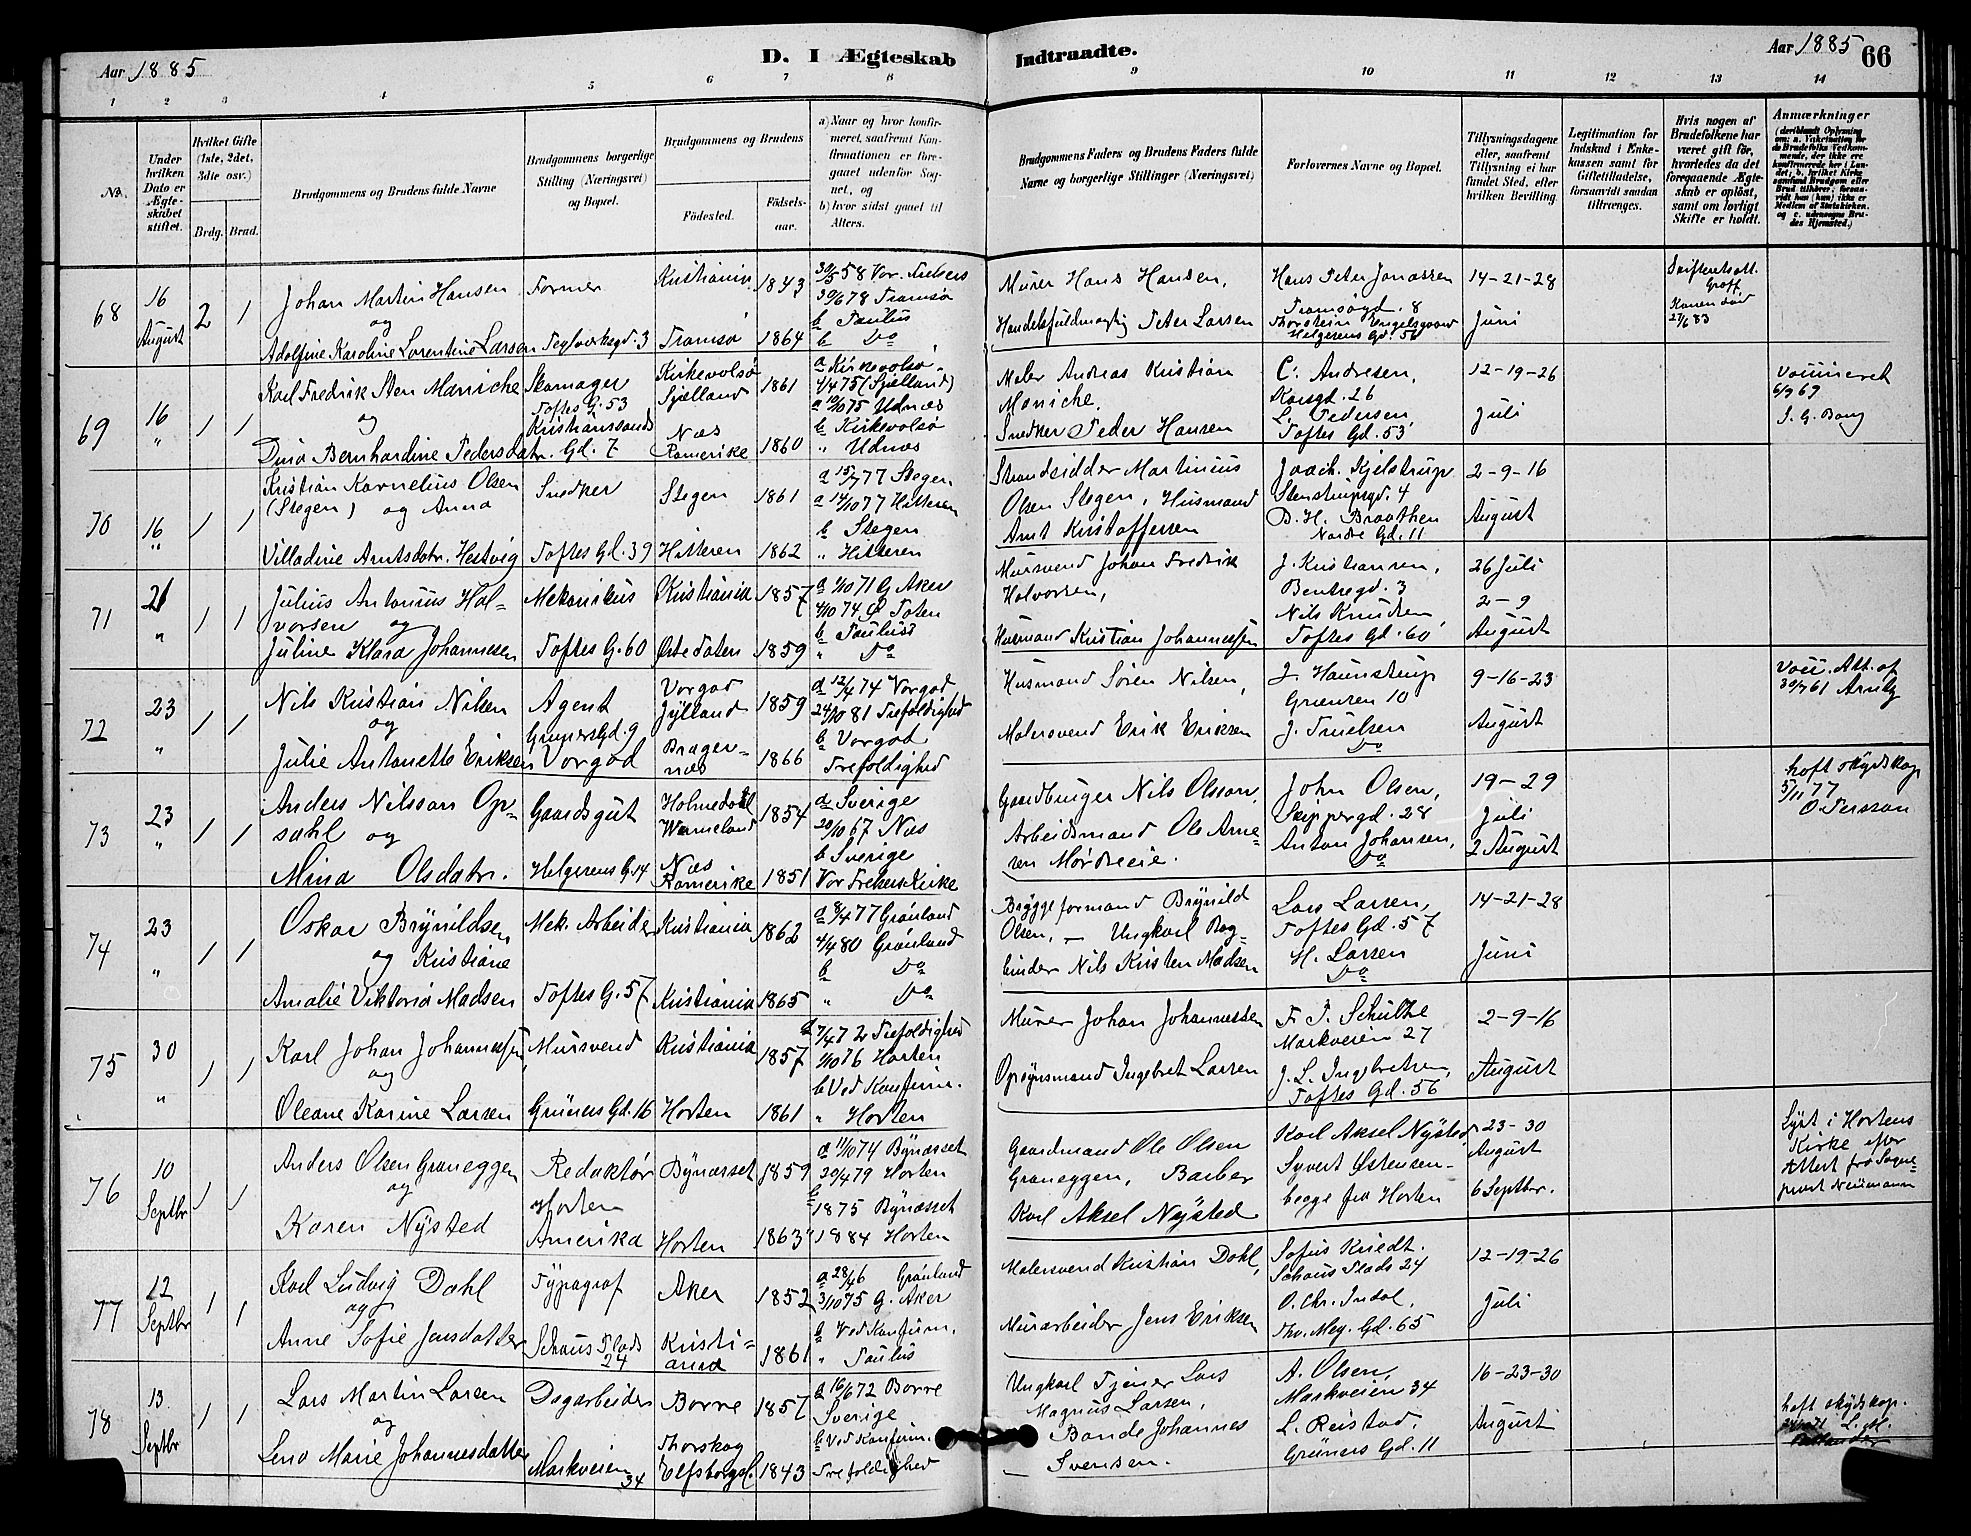 Aar 1885
D. I Ægteskab Indtraadte.
Aar 1885
66
1 2 3 4 5 6 7 8 9 10 11 12 13 14
No.
Under hvilken Dato er Ægteskabet stiftet.
Hvilket Gifte (1ste, 2det, 3die osv.)
Brdg. Brud.
Brudgommens og Brudens fulde Navne
Brudgommens borgerlige Stilling (Næringsvei) og Bopæl.
Brudgommens og Brudens
Födested.
Födsels-aar.
a) Naar og hvor konfirmeret, saafremt Konfirmationen er foregaaet udenfor Sognet, og
b) hvor sidst gaaet til Alters.
Brudgommens Faders og Brudens Faders fulde Navne og borgerlige Stillinger (Næringsvei)
Forlovernes Navne og Bopæl.
Tillysningsdagene eller, saafremt Tillysning ei har fundet Sted, efter hvilken Bevilling.
Legitimation for Indskud i Enkekassen samt for Giftetilladelse, forsaavidt saadan tiltrænges.
Hvis nogen af Brudefolkene har været gift för, hvorledes da det foregaaende Ægteskab er oplöst, samt om lovligt Skifte er holdt.
Anmærkninger
68 16 August 2 1
Johan Martin Hansen og
Adolfine Karoline Lorentine Larsen
Former
Teglverksgd. 3
Kristiania 1843
Tromsø 1864
30/5 58 Vor Frelsers
30/6 78 Tromsø
b Paulus
b Do
Murer Hans Hansen,
Handelsfuldmægtig Peter Larsen
Hans Peter Jonassen
Tromsøgd. 8
Thorstein Engelsgaard
Helgesens Gd. 56
14-21-28
Juni
Skifteretsatt.
Konen død
27/6 83
69 16 " 1 1
Karl Fredrik Sten Møniche
og
Dina Bernhardine Pedersdatr.
Skomager
Toftes G. 53
Kristianssands
Gd. 7
Kirkevolsø
Sjælland 1861
Næs
Romerike 1860
a Kirkevolsø
4/4 75 (Sjælland)
a 10/10 75 Udnæs
b Kirkevolsø
" Udnæs
Maler Andreas Kristian
Møniche.
Snedker Peder Hansen
C. Andresen,
Korsgd. 26
L. Pedersen,
Toftes Gd. 53
12-19-26
Juli
Vaccineret
6/9 69
S. G. Bang
70 16 " 1 1
Kristian Kornelius Olsen
(Stegen) og Anna
Villadine Arntsdatr. Hestvig
Snedker
Toftes Gd. 39
Stegen 1861
Hitteren 1862
a 15/7 77 Stegen
a 14/10 77 Hitteren
b Stegen
" Hitteren
Strandsidder Martinius
Olsen Stegen, Husmand
Arnt Kristoffersen
Joach. Kjelstrup
Stenstrupsgd. 4
B. H. Braathen
Nordre Gd. 11
2-9-16
August
71 21 " 1 1
Julius Antonius Hal-
vorsen og
Juline Klara Johannesen
Mekanikus
Toftes G. 60
Kristiania 1857
Østre Toten 1859
a 1/10 71 G. Aker
4/10 74 Ø Toten
b Paulus
" Do
Mursvend Johan Fredrik
Halvorsen,
Husmand Kristian Johannessen
J. Kristiansen,
Bentsegd. 3
Nils Knudsen
Toftes Gd. 60
26 Juli
2-9
August
72 23 " 1 1
Nils Kristian Nilsen
og
Julie Antonette Eriksen
Agent
Grünersgd. 9
Vorgod
Vorgod
Jylland 1859
Brager-
næs 1866
a 12/4 74 Vorgod
24/10 81 Trefoldighed
b Vorgod
Trefoldighed
Husmand Søren Nilsen,
Malersvend Erik Eriksen
J. Haunstrup
Grænsen 10
J. Truelsen
Do
9-16-23
August
Vacc. Att. af
30/7 61
73 23 " 1 1
Anders Nilsson Op-
sahl og
Mina Olsdatr.
Gaardsgut
Helgesens G. 14
Holmedahl
Wermeland 1854
Næs
Romerike 1851
a Sverige
20/10 67 Næs
b Sverige
Vor Frelsers Kirke
Gaardbruger Nils Olsson,
Arbeidsmand Ole Arne-
sen Mørdreeie.
John Olsen,
Skippergd. 28
Anton Johansen,
Do
19-29
Juli
2 August
haft skydskap
5/11 77
O. Persson
74 23 " 1 1
Oskar Brynildsen
og Kristiane
Amalie Viktoria Madsen
Mek. Arbeider
Toftes G. 57
Kristiania 1862
Kristiania 1865
a 8/4 77 Grønland
4/4 80 Grønland
b Do
" Do
Bryggeformand Brynild
Olsen, — Ungkarl Bog-
binder Nils Kristen Madsen
Lars Larsen,
Toftes Gd. 57
H. Larsen
Do
14-21-28
Juni
75 30 " 1 1
Karl Johan Johannessen
og
Oleane Karine Larsen
Mursvend
Grüners Gd. 16
Kristiania 1857
Horten 1861
a 7/4 72 Trefoldighed
1/10 76 Horten
b Ved Konfirm.
" Horten
Murer Johan Johannessen
Opsynsmand Ingebret Larsen
F. P. Schultze
Markveien 27
J. L. Ingebretsen,
Toftes Gd. 56
2-9-16
August
76 10 Septbr 1 1
Anders Olsen Graneggen
og
Karen Nysted
Redaktør
Horten
Amerika
Bynæsset 1859
Horten 1863
a 11/10 74 Bynæsset
20/4 79 Horten
b
1875 Bynæsset
" 1884 Horten
Gaardmand Ole Olsen
Graneggen, Barber
Karl Aksel Nysted
Karl Aksel Nysted
Syvert Østensen-
begge fra Horten
23-30
August
6 Septbr.
Lyst i Hortens
Kirke efter
Attest fra Sogne-
prest Neumann
77 12 Septbr 1 1
Karl Ludvig Dahl
og
Anne Sofie Jensdatter
Typograf
Schous Plads
24
Aker 1852
Kristi-
ania 1861
a 28/4 6 Grønland
3/10 75 G. Aker
b Ved Konfirm.
" Paulus
Malersvend Kristian Dahl,
Murarbeider Jens Eriksen
Sofus Kriedt.
Schous Plads 24
O. Chr. Indal,
Thv. Mey. Gd. 65
12-19-26
Juli
78 13 Septbr 1 1
Lars Martin Larsen
og
Lena Marie Johannesdatter
Dagarbeider
Markveien 34
Borre 1857
Thorskog
Elfsborgsl. 1843
a 16/6 72 Borre
Sverige
b Ved Konfirm.
Trefoldighed
Ungkarl Tjener Lars
Magnus Larsen,
Bonde Johannes
— Svensen.
A. Olsen,
Markveien 34
L. Reistad,
Grüners Gd. 11
16-23-30
August
haft skydskop.